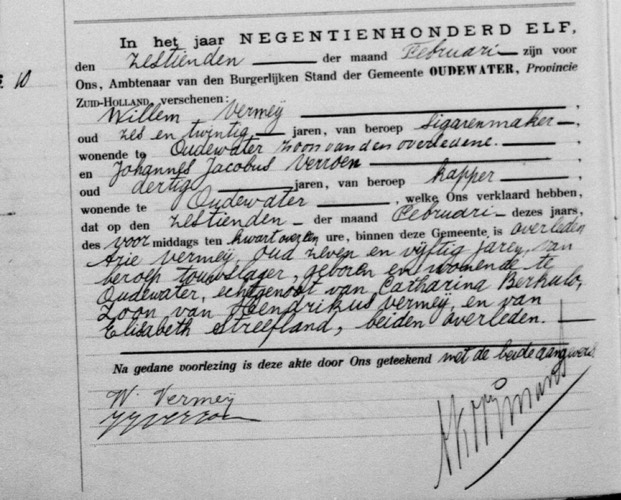 In het jaar NEGENTIENHONDERD ELF,
den zestienden der maand Februari zijn voor
10
Ons, Ambtenaar van den Burgerlijken Stand der Gemeente OUDEWATER, Provincie
ZUID-HOLLAND, verschenen:
Willem Vermeÿ ,
oud zes en twintig jaren, van beroep sigarenmaker ,
wonende te Oudewater zoon van den overledene.
en Johannes Jacobus Verroen ,
oud dertig jaren, van beroep kapper ,
wonende te Oudewater , welke Ons verklaard hebben,
dat op den zestienden der maand Februari dezes jaars,
des voor middags ten kwart over een ure, binnen deze Gemeente is overleden
Arie Vermey, oud zeven en vijftig jaren, van
beroep touwslager, geboren en wonende te
Oudewater, echtgenoot van Catharina
zoon van Hendrikus Vermey, en van
Elisabeth Streefland, beiden overleden.
Na gedane voorlezing is deze akte door Ons geteekend met de beide aangevers
W. Vermey